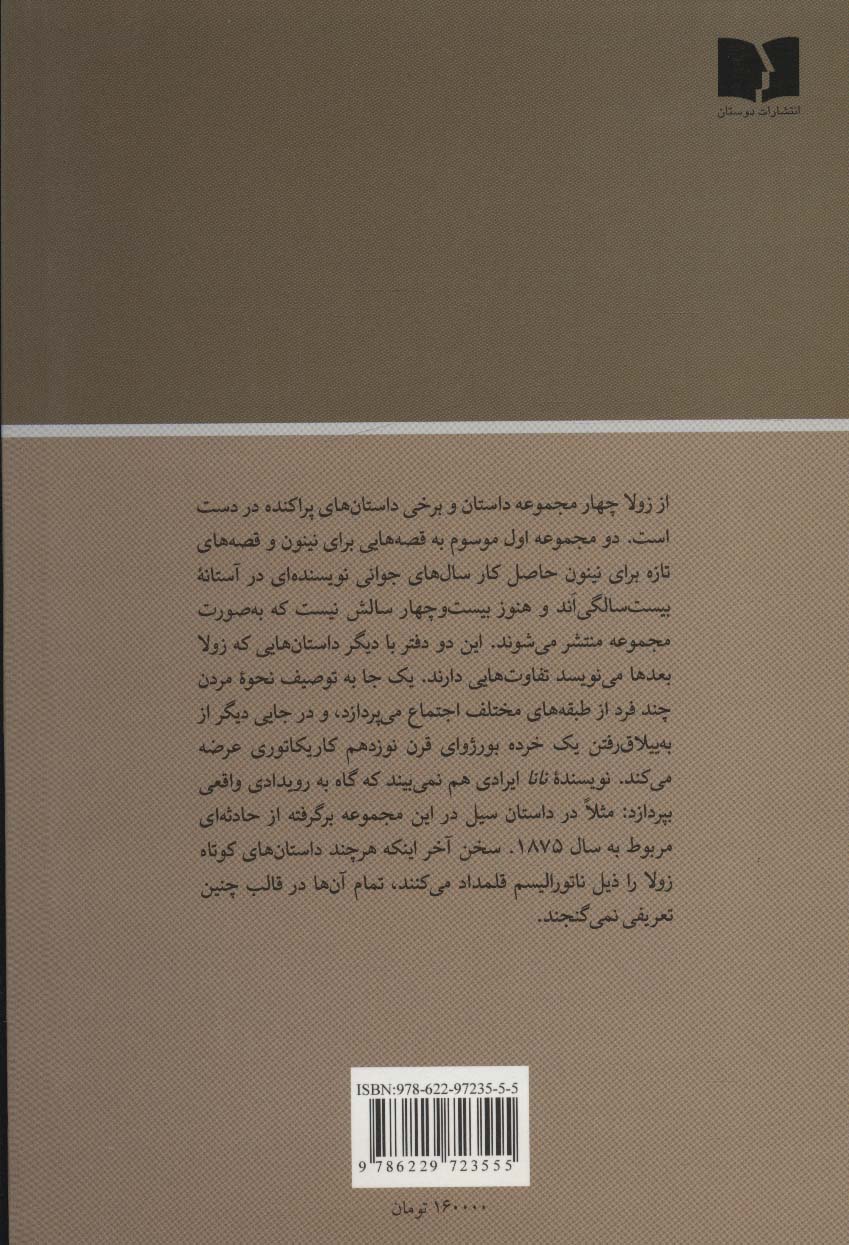 انتشارات دوستان
از زولا چهار مجموعه داستان و برخی داستان‌های پراکنده در دست
است. دو مجموعه اول موسوم به قصه‌هایی برای نینون و قصه‌های
تازه برای نینون حاصل کار سال‌های جوانی نویسنده‌ای در آستانهٔ
بیست‌سالگی‌اَند و هنوز بیست‌وچهار سالش نیست که به‌صورت
مجموعه منتشر می‌شوند. این دو دفتر با دیگر داستان‌هایی که زولا
بعدها می‌نویسد تفاوت‌هایی دارند. یک جا به توصیف نحوهٔ مردن
چند فرد از طبقه‌های مختلف اجتماع می‌پردازد، و در جایی دیگر از
به‌ییلاق‌رفتن یک خرده بورژوای قرن نوزدهم کاریکاتوری عرضه
می‌کند. نویسندهٔ نانا ایرادی هم نمی‌بیند که گاه به رویدادی واقعی
بپردازد: مثلاً در داستان سیل در این مجموعه برگرفته از حادثه‌ای
مربوط به سال ۱۸۷۵. سخن آخر اینکه هرچند داستان‌های کوتاه
زولا را ذیل ناتورالیسم قلمداد می‌کنند، تمام آن‌ها در قالب چنین
تعریفی نمی‌گنجند.
ISBN:978-622-97235-5-5
9 786229 723555
۱۶۰۰۰۰ تومان